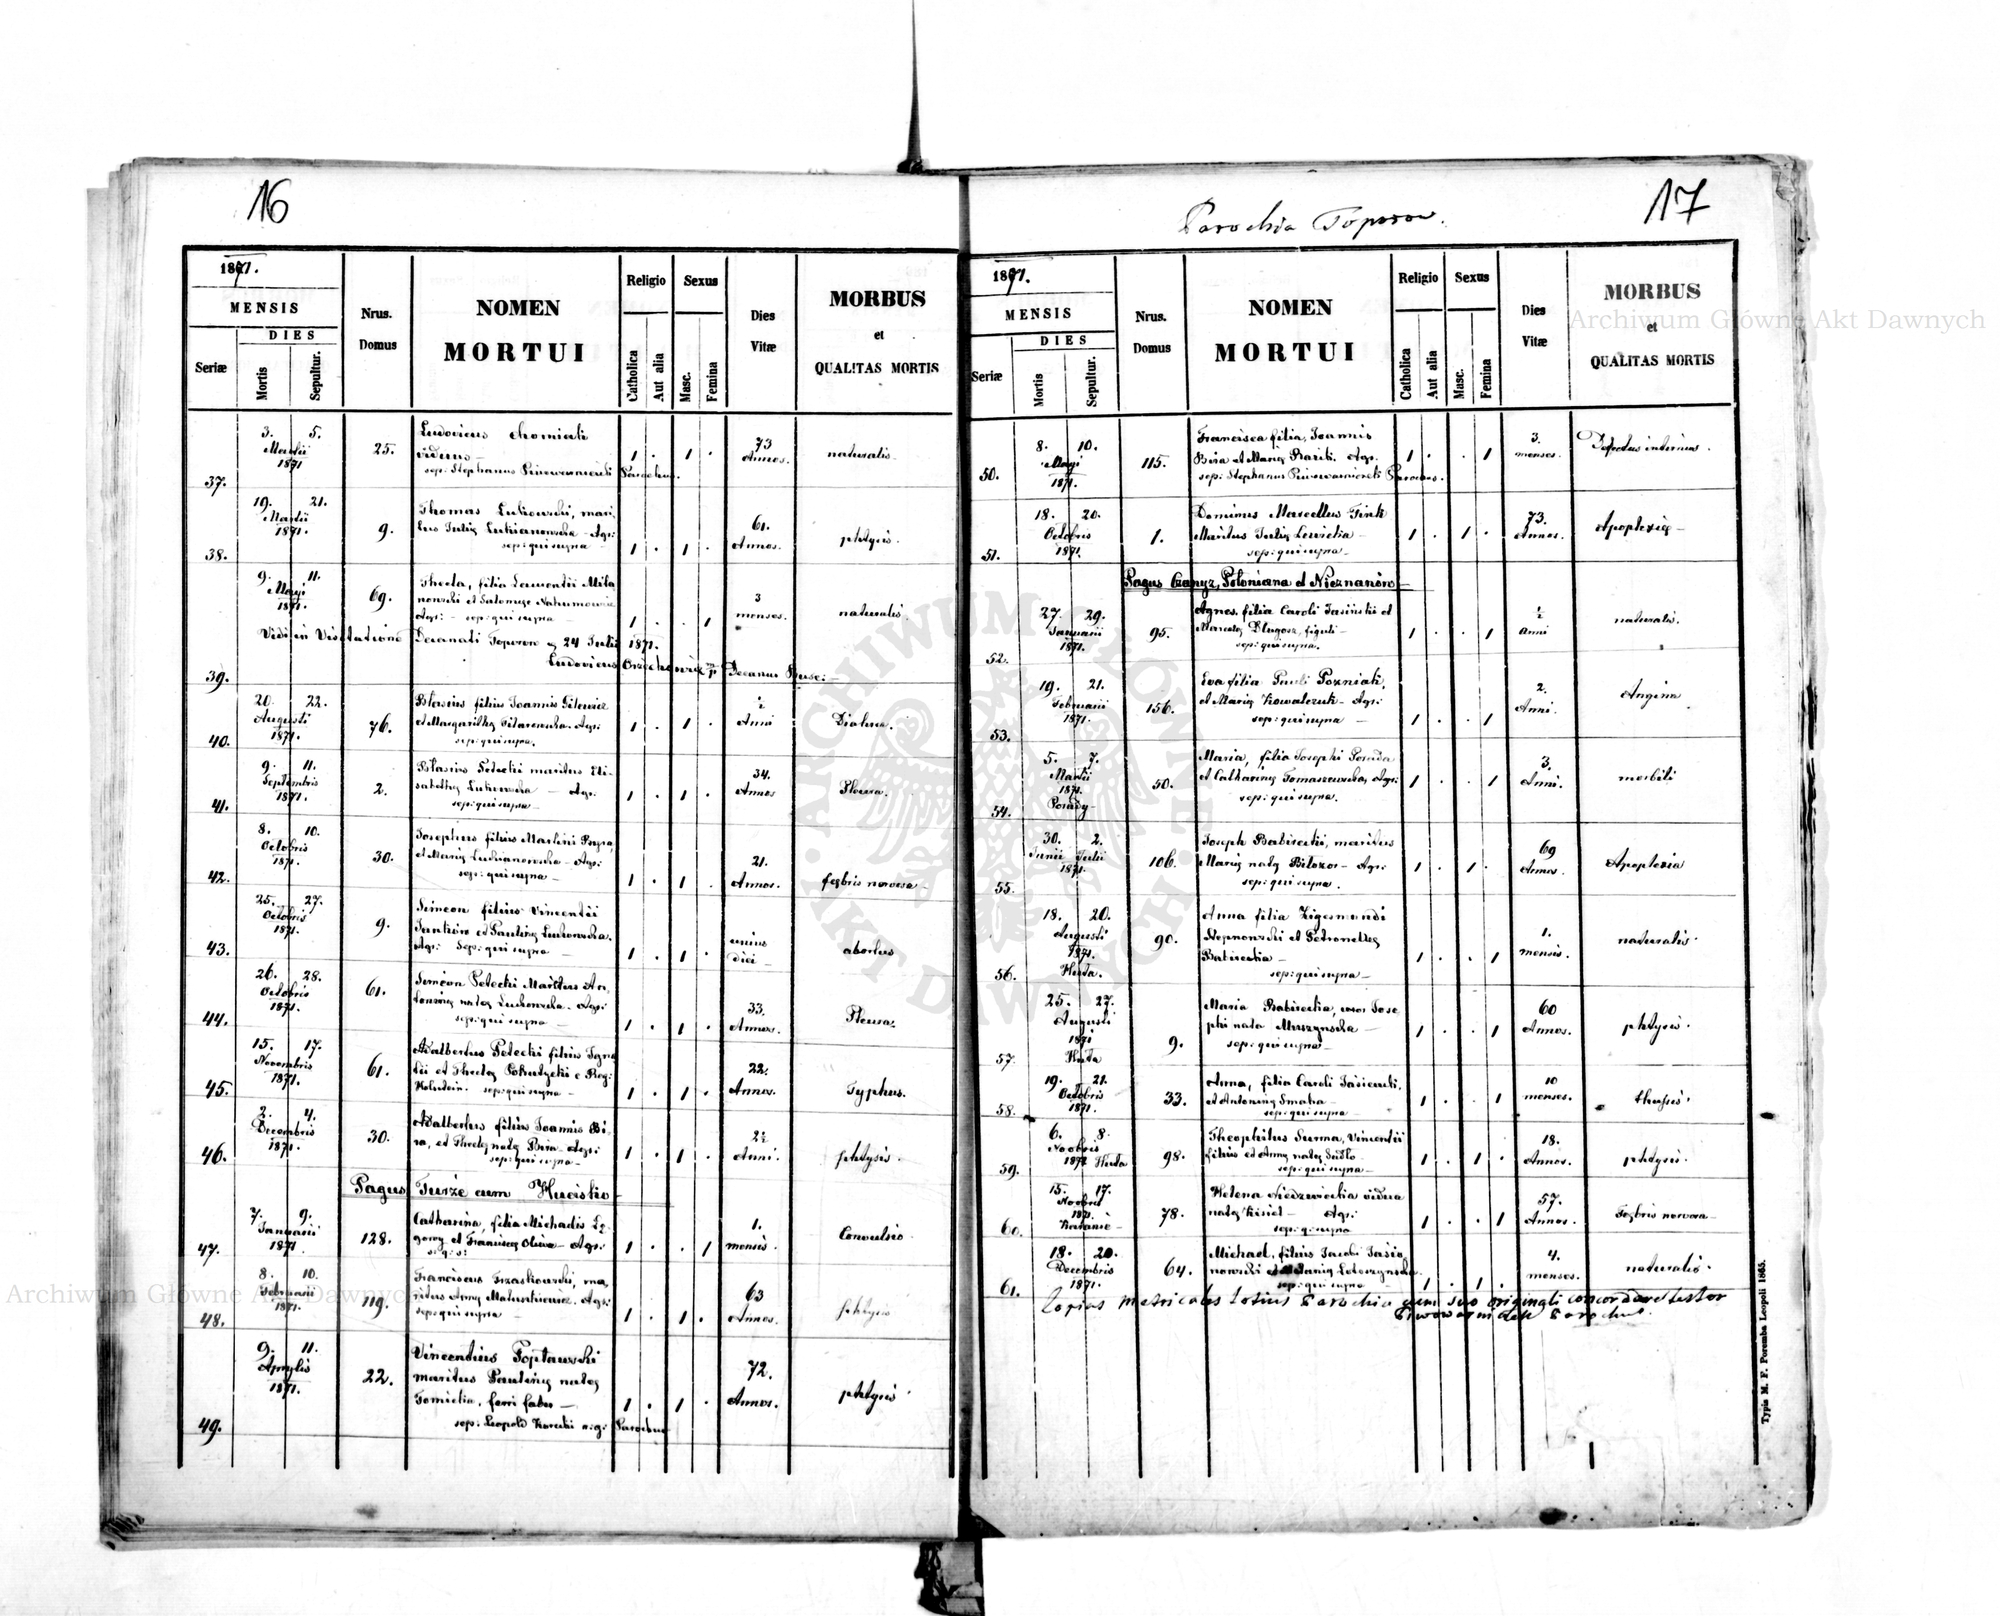 16
1871.
MENSIS
DIES
Seriæ
Mortis
Sepultur.
Nrus.
Domus
NOMEN
MORTUI
Religio
Catholica
Aut alia
Sexus
Masc.
Femina
Dies
Vitæ
MORBUS
et
QUALITAS MORTIS
37.
3. 5.
Martii
1871
25.
Ludovicus
viduus
sep: Stephanus Parochus.
1 . 1 .
73
Annos.
naturalis.
38.
19. 21.
Martii
1871.
9.
Thomas Lukowski, mari-
tus Julię Lukianowska - Agr:
sep: qui supra
1 . 1 .
61.
Annos.
phtysis.
39.
9. 11.
Maji
1871.
69.
Thecla, filia
Agr: - sep: qui supra
1 . . 1
3
menses.
naturalis.
Vidi in Visitatione Decanali Toporow 24 Julii 1871.
Ludovicus Orzechowicz Decanus Busc:
40.
20. 22.
Augusti
1871.
76.
Blasius filius Joannis
et Margarithę Agr:
sep: qui supra.
1 . 1 .
½
Anni
41.
9. 11.
Septembris
1871.
2.
Blasius Petecki maritus Eli-
sabethę Lukowska - Agr:
sep: qui supra
1 . 1 .
34.
Annos
Pleura.
42.
8. 10.
Octobris
1871.
30.
Josephus filius Martini
et Marię Lukianowska - Agr:
sep: qui supra
1 . 1 .
21.
Annos.
febris nervosa
43.
25. 27.
Octobris
1871.
9.
Simeon filius Vincentii
et Paulinę Lukowska.
Agr: Sep: qui supra
1 . 1 .
unius
diei
abortus
44.
26. 28.
Octobris
1871.
61.
Simeon Petecki Maritus An-
toninę natę Lukowska. Agr:
sep: qui supra
1 . 1 .
33.
Annos.
Pleura.
45.
15. 17.
Novembris
1871.
61.
Adalbertus Petecki filius Igna-
tii et Theclę
sep: qui supra
1 . 1 .
22.
Annos.
Typhus.
46.
2. 4.
Decembris
1871.
30.
Adalbertus filius Joannis Bi-
ra, et Theclę natę Agr:
sep: qui supra
1 . 1 .
2½
Anni.
phtysis.
Pagus Turze cum Hucisko
47.
7. 9.
Januarii
1871
128.
Catharina, filia Michaelis
et Franciscę Oliwa - Agr:
s: q: s:
1 . . 1
1.
mensis.
Convulsio.
48.
8. 10.
Februarii
1871.
119.
Franciscus Trzaskowski, ma-
ritus Annę Matuszkiewicz. Agr:
sep: qui supra
1 . 1 .
63
Annos.
phtysis
49.
9. 11.
Aprylis
1871.
22.
Vincentius
maritus Paulinę natę
ferri faber
sep: Leopold Parochus
1 . 1 .
72.
Annos.
phtysis.
17
Parochia Toporow.
1871.
MENSIS
DIES
Seriæ
Mortis
Sepultur.
Nrus.
Domus
NOMEN
MORTUI
Religio
Catholica
Aut alia
Sexus
Masc.
Femina
Dies
Vitæ
MORBUS
et
QUALITAS MORTIS
50.
8. 10.
Maji
1871.
115.
Francisca filia, Joannis
Bira et Marię Agr.
sep: Stephanus Parochus.
1 . . 1
3.
menses.
Defectus internus.
51.
18. 20.
Octobris
1871.
1.
Dominus Marcellus Fink
Maritus Julię
sep: qui supra
1 . 1 .
73.
Annos.
Apoplexię
Pagus Czanyz, Poloniczna et Nieznanów
52.
27. 29.
Januarii
1871.
95.
Agnes, filia Caroli Jasiński et
Długosz, figuli
sep: qui supra.
1 . . 1
½
Anni
naturalis.
53.
19. 21.
Februarii
1871.
156.
Eva filia Pauli Pozniak,
et Marię Kowalczuk - Agr:
sep: qui supra
1 . . 1
2.
Anni.
Angina
54.
5. 7.
Martii
1871.
50.
Maria, filia Josephi
et Catharinę Tomaszewska, Agr:
sep: qui supra.
1 . . 1
3.
Anni.
morbili
55.
30. 2.
Junii Julii
1871.
106.
Joseph Babirecki, maritus
Marię natę Bilozor - Agr:
sep: qui supra.
1 . 1 .
69
Annos.
Apoplexia
56.
18. 20.
Augusti
1871.
Huta.
90.
Anna filia Zigesmundi
et Petronellę
Babirecka
sep: qui supra
1 . . 1
1.
mensis.
naturalis.
57.
25. 27.
Augusti
1871
Huta
9.
Maria Babirecka, uxor Jose-
phi nata Muszynska
sep: qui supra
1 . . 1
60
Annos.
phtysis.
58.
19. 21.
Octobris
1871.
33.
Anna, filia Caroli
et Antoninę
sep: qui supra
1 . . 1
10
menses.
59.
6. 8.
Novbris
Huta
98.
Theophilus Surma, Vincentii
filius et Annę natę
sep: qui supra
1 . 1 .
18.
Annos.
phtysis.
60.
15. 17.
Novbris
1871.
78.
Helena Niedzwiecka vidua
natę Kisiel - Agr:
sep: qui supra
1 . . 1
57.
Annos.
Febris nervosa
61.
18. 20.
Decembris
1871.
64.
Michael, filius Jacobi Jasia-
nowski
sep: qui supra
1 . 1 .
4.
menses.
naturalis.
Copias metricales totius Parochia cum suo originali concordare testor
Parochus.
Typis M. F. Poremba Leopoli 1865.
Archiwum Główne Akt Dawnych
Archiwum Główne Akt Dawnych
ARCHIWUM GŁÓWNE AKT DAWNYCH